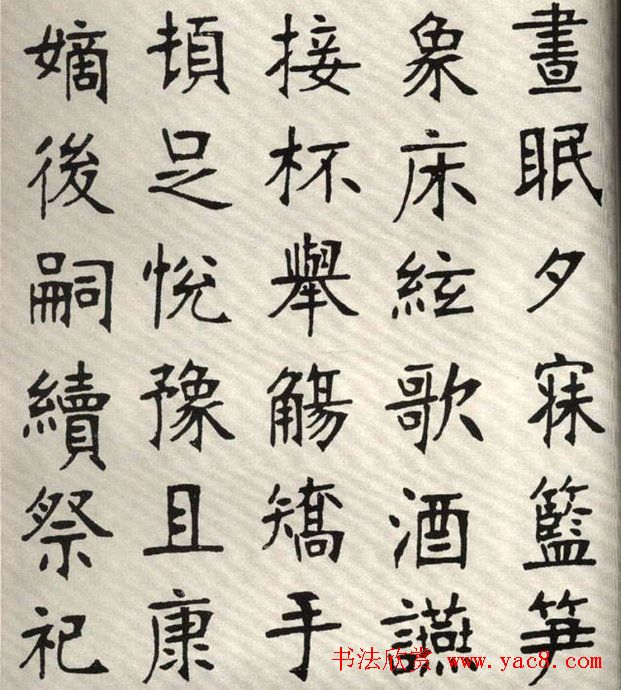 晝眠夕寐籃笋
象床絃歌酒讌
接杯舉觴矯手
頓足悅豫且康
嫡後嗣續祭祀
书法欣赏 www.yac8.com